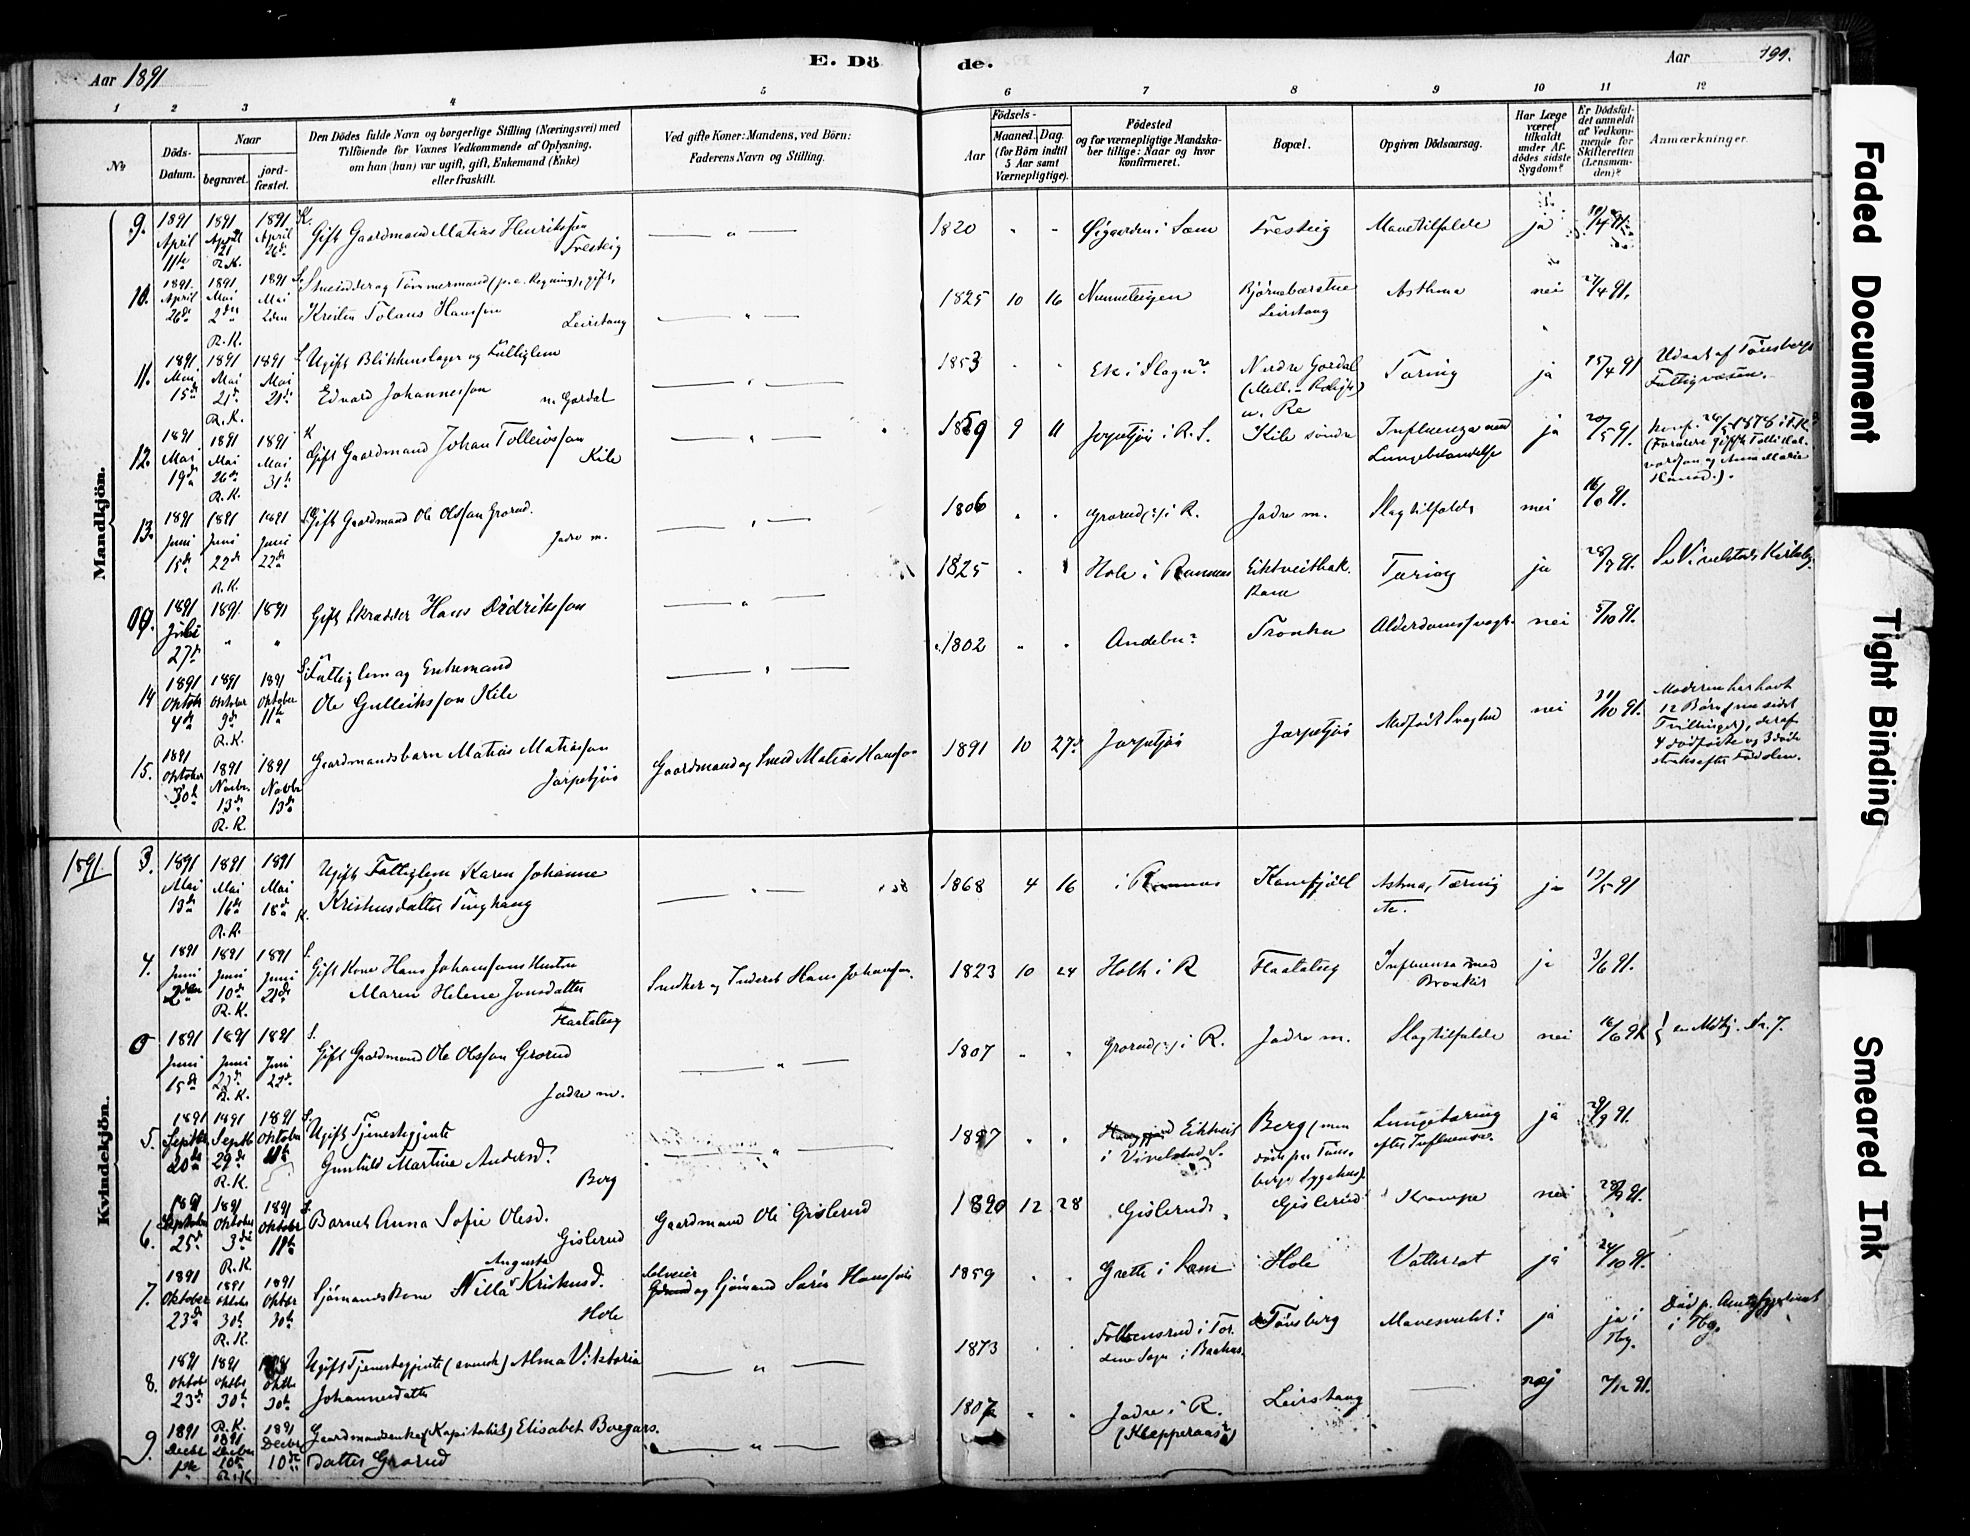 Aar 1891
E. Dö
de.
Aar
199.
1 2 3 4 5 6 7 8 9 10 11 12
No
Döds-Datum.
Naar
begravet.
jord-fæstet.
Den Dödes fulde Navn og borgerlige Stilling (Næringsvei) med
Tilföiende for Voxnes Vedkommende af Oplysning,
om han (hun) var ugift, gift, Enkemand (Enke)
eller fraskilt.
Ved gifte Koner: Mandens, ved Börn:
Faderens Navn og Stilling.
Födsels-
Aar
Maaned. Dag.
(for Börn indtil
5 Aar samt
Værnepligtige).
Födested
og for værnepligtige Mandska-
ber tillige: Naar og hvor
konfirmeret.
Bopæl.
Opgiven Dödsaarsag.
Har Læge
været
tilkaldt
under Af-
dödes sidste
Sygdom?
Er Dödsfal-
det anmeldt
af Vedkom-
mende for
Skifteretten
(Lensman-
den)?
Anmærkninger.
Mandkjön.
9. 1891 April 11te 1891 April 21 R.K. 1891 April 26de K. Gift Gaardmand Matias Henriksson Fresteig — " — 1820 " - Øigaarden i Sem Fresteig Mavetilfælde ja
10. 1891 April 26de 1891 Mai 2den R.K. 1891 Mai 2den S. Snedker og Tømmermand (p. e. Regning), gift,
Kristen Tolaus Hanssen Leirstang — " — 1825 10 16 Nunneteigen Bjørnebærstue Leirstang Asthma nei 27/4 91.
11. 1891 Mai 15de 1891 Mai 21de R.K. 1891 Mai 21de S. Ugift Blikkenslager og Fattiglem
Edvard Johannesson n. Gordal — " — 1853 " " Ek i Slagn? Nerdre Gordal Tæring ja 15/4 91 Udsat af Tønsbergs
Fattigvæsen.
12. 1891 Mai 19de 1891 Mai 26de R.K. 1891 Mai 31te K Gift Gaardmand Johan Tollevsson
Kile — " — 1859 9 11 Jorpetjøs i R. S. Kile søndre Influenza med
Lungebetændelse ja 20/5 91.
13. 1891 Juni 15de 1891 Juni 22de R.K. 1891 Juni 22de Gift Gaardmand Ole Olsson Grorud.
Jadre m. — " — 1806 " " Grorud (?) i R. Jadre m. Slagtilfælde nei
09. 1891 Juli 27de 1891 " 1891 " Gift Skrædder Hans Didriksson — " — 1825 " " Hole i Ramnes Eiktveitbak. Ram Tæring ja Se Vivelstads Kirkebog.
14 1891 Oktober 4de 1891 Oktober 9de R.K. 1891 Oktober 11te S. Fattiglem og Enkemand
Ole Gulleiksson Kile — " — 1802 " " Andebu? Fronku Alderdomssvagh. nei 5/10 91.
15. 1891 Oktober 30te 1891 Novbr. 13de R.K. 1891 Novbr 13de Gaardmandsbarn Matias Matiasson
Jorpetjøs Gaardmand og Smed Matias Hansson 1891 10 27de Jorpetjøs Jorpetjøs Medfødt Svaghed nei 31/10 91. Moderen har havt
12 Børn (nu sidst
Tvillinger), deraf
4 dødfødte og 3 døde
straks efter Fødslen.
1891.
Kvindekjön.
3. 1891 Mai 13de 1891 Mai 16de R.K. 1891 Mai 18de K. Ugift Fattiglem Karen Johanne
Kristensdatter Tinghaug — " — 1868 4 16 i Ramnes Kamfjøll Astma, Tæring
etc. ja 19/5 91
4. 1891 Juni 2den 1891 Juni 10de R.K. 1891 Juni 21de S. Gift Kone Hans Johanssons Hustru
Maren Helene Jonsdatter
Flaatateg Snedker og Inderst Hans Johansson. 1823 10 24 Holt i R Flaatateg Influensa med
Bronkit ja 3/6 91.
0 1891 Juni 15de 1891 Juni 22de R.K. 1891 Juni 22de S. Gift Gaardmand Ole Olsson Grorud
Jadre m. — " — 1807 " " Grorud (?) i R. Jadre m. Slagtilfælde nei 16/6 91 } se Mdkj. Nr. 7.
5. 1891 Septbr 20de 1891 Septb 29de R.K. 1891 Oktober 11te S. Ugift Tjenestegjente
Gunhild Martine Andersd.
Berg — " — 1857 " " Eiktveit
i Vivelstad S. Berg (men
døde paa Tøns-
bergs Sygehus). Lungetæring
efter Influensa. ja 21/9 91.
6. 1891 September 25de 1891 Oktober 3die R.K. 1891 Oktober 11te S. Barnet Anna Sofie Olesd.
Gislerud Gaardmand Ole Gislerud 1890 12 28 Gislerud Gislerud Krampe nei 28/9 91.
7. 1891 Oktober 23de 1891 Oktober 30te R.K. 1891 Oktbr 30te Sjømandskone Nilla Augusta Kristensd.
Hole Selveier og Sjømand Søren Hansson 1859 " " Grette i Sem Hole Vattersot ja 24/10 91.
8. 1891 Oktober 23de 1891 Oktbr 30te R.K. 1891 Oktbr 30te Ugift Tjenestegjente (svensk) Alma Viktoria
Johannesdatter — " — 1873 " " Tønsberg Mavesvulst? ja ja i
Tbg. Død p. Amtssygehuset
i Tbg.
9. 1891 Decbr 1ste 1891 Decbr 10de R.K. 1891 Decbr 10de Gaardmandsenke (Kapitalist) Elisabet Boregars-
datter Grorud — " — 1807 " " Jadre i R.
(Klepperaas?) Leirstang — nej
Faded Document
Tight Binding
Smeared Ink